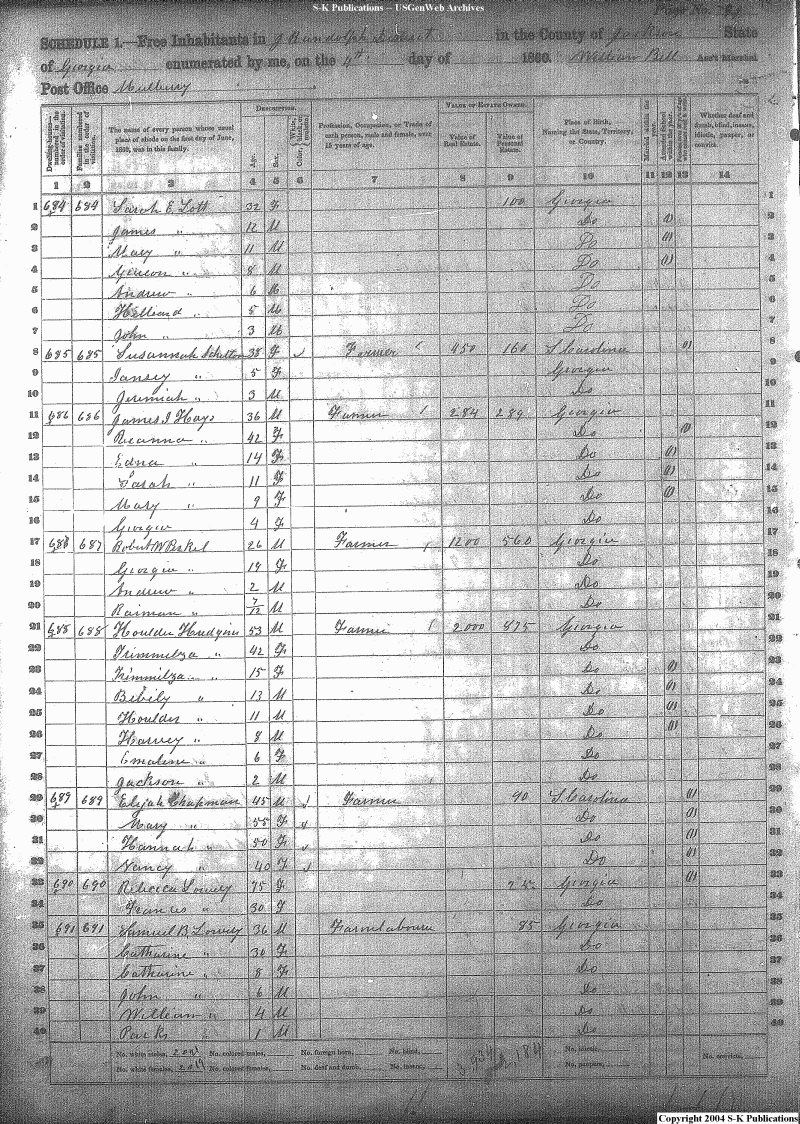 S-K Publications -- USGenWeb Archives
Page No.
SCHEDULE 1.—Free Inhabitants in J Randolph District in the County of Jackson State
of Georgia enumerated by me, on the 4th day of 1860. William Bell Ass't Marshal
Post Office Mulbury
DESCRIPTION. VALUE OF ESTATE OWNED.
Dwelling-houses—numbered in the order of visitation. Families numbered in the order of visitation. The name of every person whose usual place of abode on the first day of June, 1860, was in this family. Age. Sex. Color, White, black, or mulatto. Profession, Occupation, or Trade of each person, male and female, over 15 years of age. Value of Real Estate. Value of Personal Estate. Place of Birth, Naming the State, Territory, or Country. Married within the year. Attended School within the year. Whether deaf and dumb, blind, insane, idiotic, pauper, or convict.
1 2 3 4 5 6 7 8 9 10 11 12 13 14
1 684 684 Sarah E. Lott 32 F 100 Georgia 1
2 James " 12 M Do (1) 2
3 Mary " 11 M Do (1) 3
4 " 8 M Do (1) 4
5 Andrew " 6 M Do 5
6 " 5 M Do 6
7 John " 3 M Do 7
8 685 685 Susannah Shelton 38 F Farmer 450 160 S. Carolina (1) 8
9 " 5 F Georgia 9
10 Jeremiah " 3 M Do 10
11 686 686 James J Hays 36 M Farmer 284 289 Georgia 11
12 " 42 F Do (1) 12
13 Edna " 14 F Do (1) 13
14 Sarah " 11 F Do (1) 14
15 Mary " 9 F Do (1) 15
16 Georgia 4 F Do 16
17 687 Robert 26 M Farmer 1200 560 Georgia 17
18 Georgia " 19 F Do 18
19 Andrew " 2 M Do 19
20 " 7/12 M Do 20
21 688 688 Houlder Hudgins 53 M Farmer 2000 875 Georgia 21
22 " 42 F Do 22
23 " 15 F Do (1) 23
24 " 13 M Do (1) 24
25 Houlder " 11 M Do (1) 25
26 Harvey " 8 M Do (1) 26
27 Emaline " 6 F Do 27
28 Jackson " 2 M Do 28
29 689 689 Elijah Chapman 45 M Farmer 90 S. Carolina (1) 29
30 Mary " 55 F Do (1) 30
31 Hannah " 50 F Do (1) 31
32 Nancy " 40 F Do (1) 32
33 690 690 Rebecca Lowry 75 F Georgia (1) 33
34 Frances " 30 F Do 34
35 691 691 Samuel B. Lowry 36 M Farm labourer 85 Georgia 35
36 Catharine " 30 F Do 36
37 Catharine " 8 F Do 37
38 John " 6 M Do 38
39 William " 4 M Do 39
40 Parks 1 M Do 40
No. white males, No. colored males, No. foreign born, No. blind, No. idiotic, No. convicts,
No. white females, No. colored females, No. deaf and dumb, No. insane, No. paupers,
Copyright 2004 S-K Publications